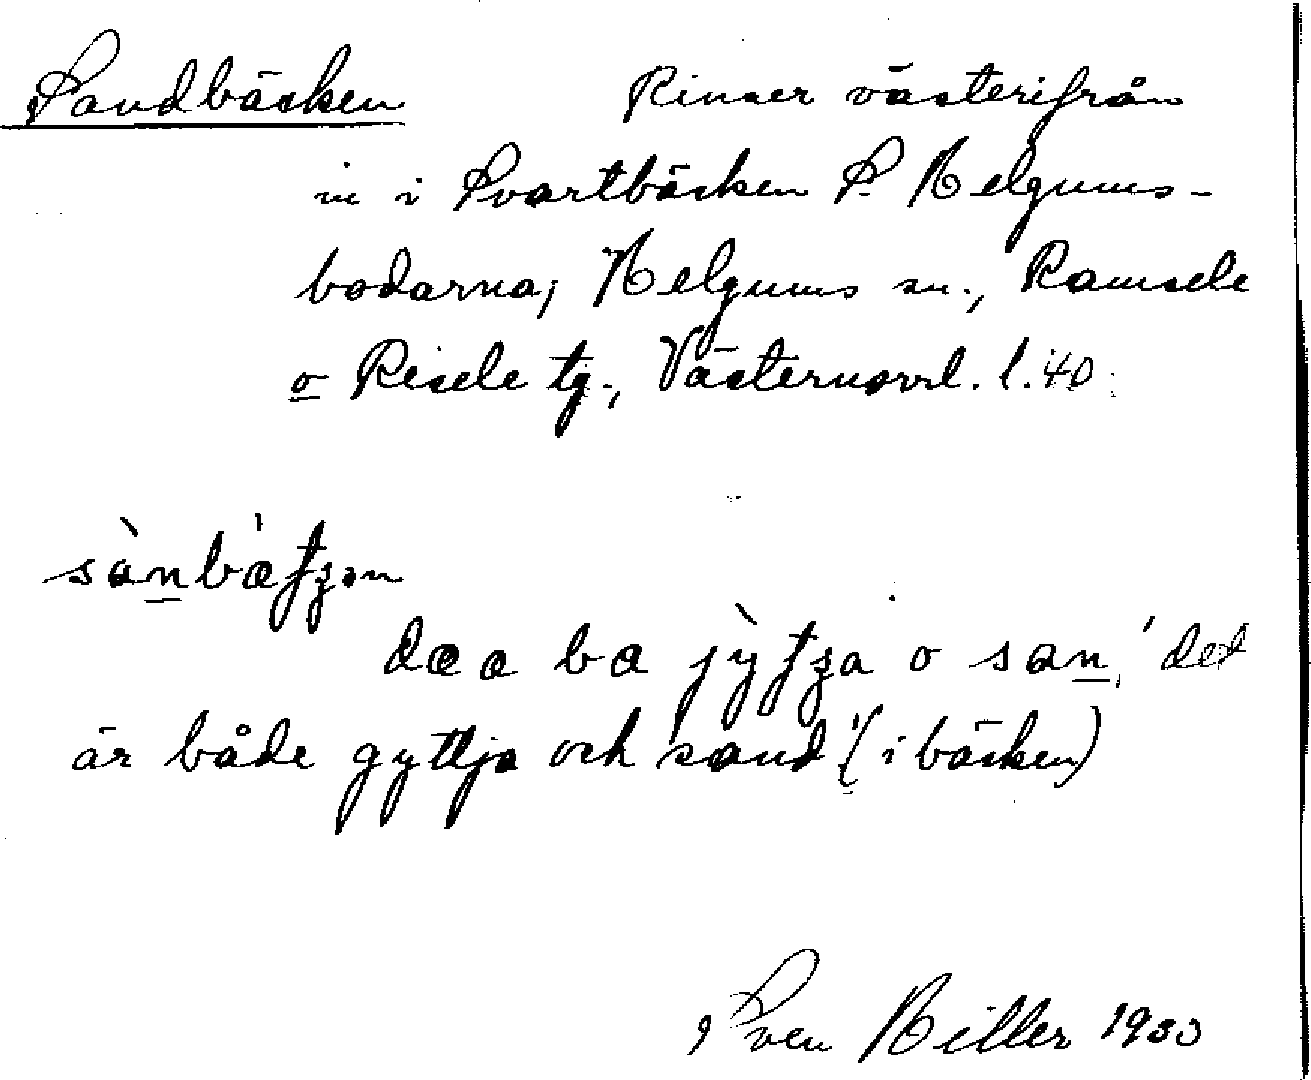 Sandbäcken Rinner västerifrån
in i Svartbäcken S. Helgums-
bodarna; Helgums sn., Ramsele
o Resele tg., Västernorrl. l. 40.
sànbæ̀tʒən
dææ ba jỳtʒa o san, 'det
är både gyttja och sand' (i bäcken)
Sven Hiller 1933